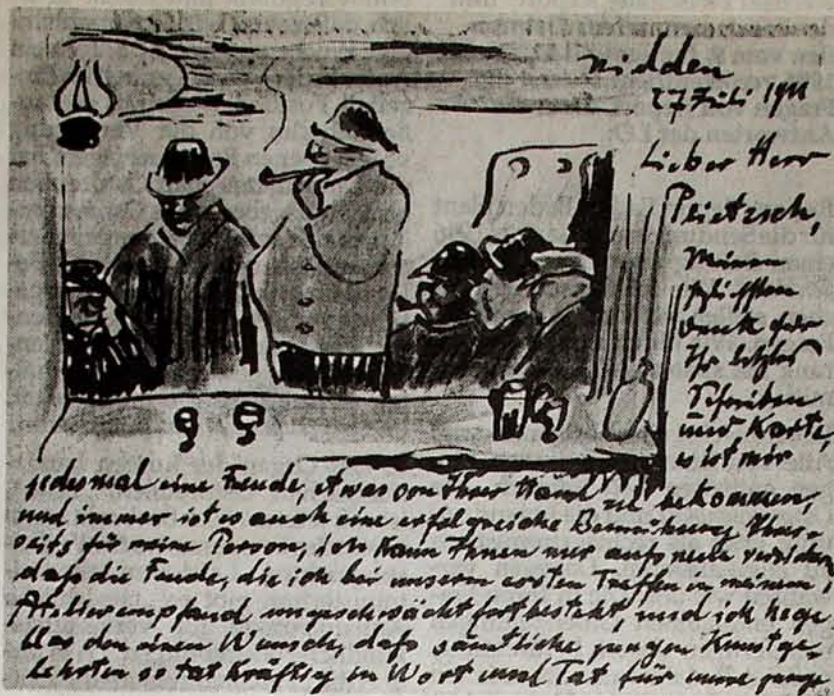 nidden
27 Juli 1911
Lieber Herr
Plietzsch,
Meinen
Dank für
Ihr letztes
Schreiben
und Karte,
es ist mir
jedesmal eine Freude, etwas von Ihrer Hand zu bekommen,
und immer ist es auch eine erfolgreiche Bemühung Ihrer-
seits für meine Person, ich kann Ihnen nur aufs neue versichern
daß die Freude, die ich bei unserm ersten Treffen in meinem
Atelier empfand ungeschwächt fortbesteht, und ich hege
blos den einen Wunsch, daß sämtliche jungen Kunstge-
lehrten so tatkräftig in Wort und Tat für unsre junge